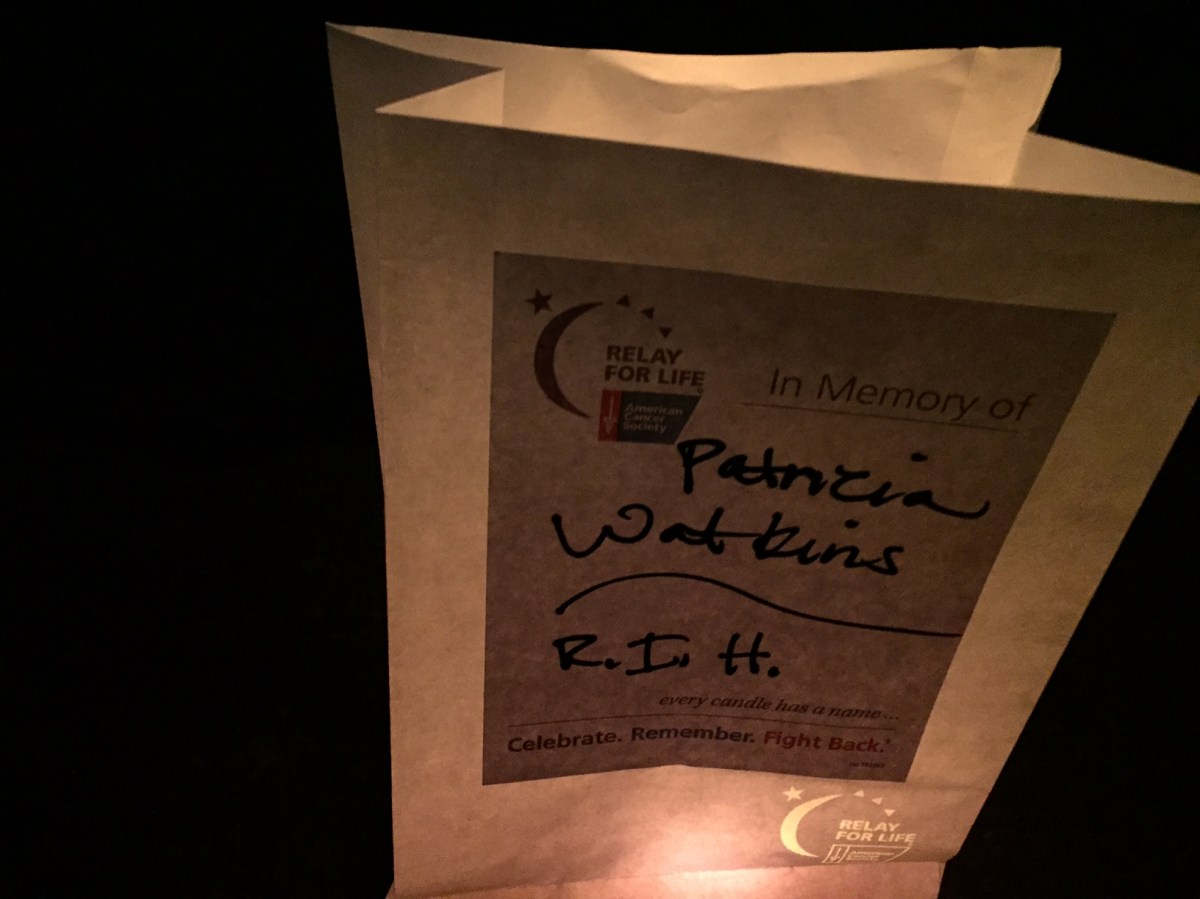 RELAY
FOR LIFE
American
Cancer
Society
In Memory of
Patricia
Watkins
R.I.H.
every candle has a name...
Celebrate. Remember. Fight Back.®
RELAY
FOR LIFE
American